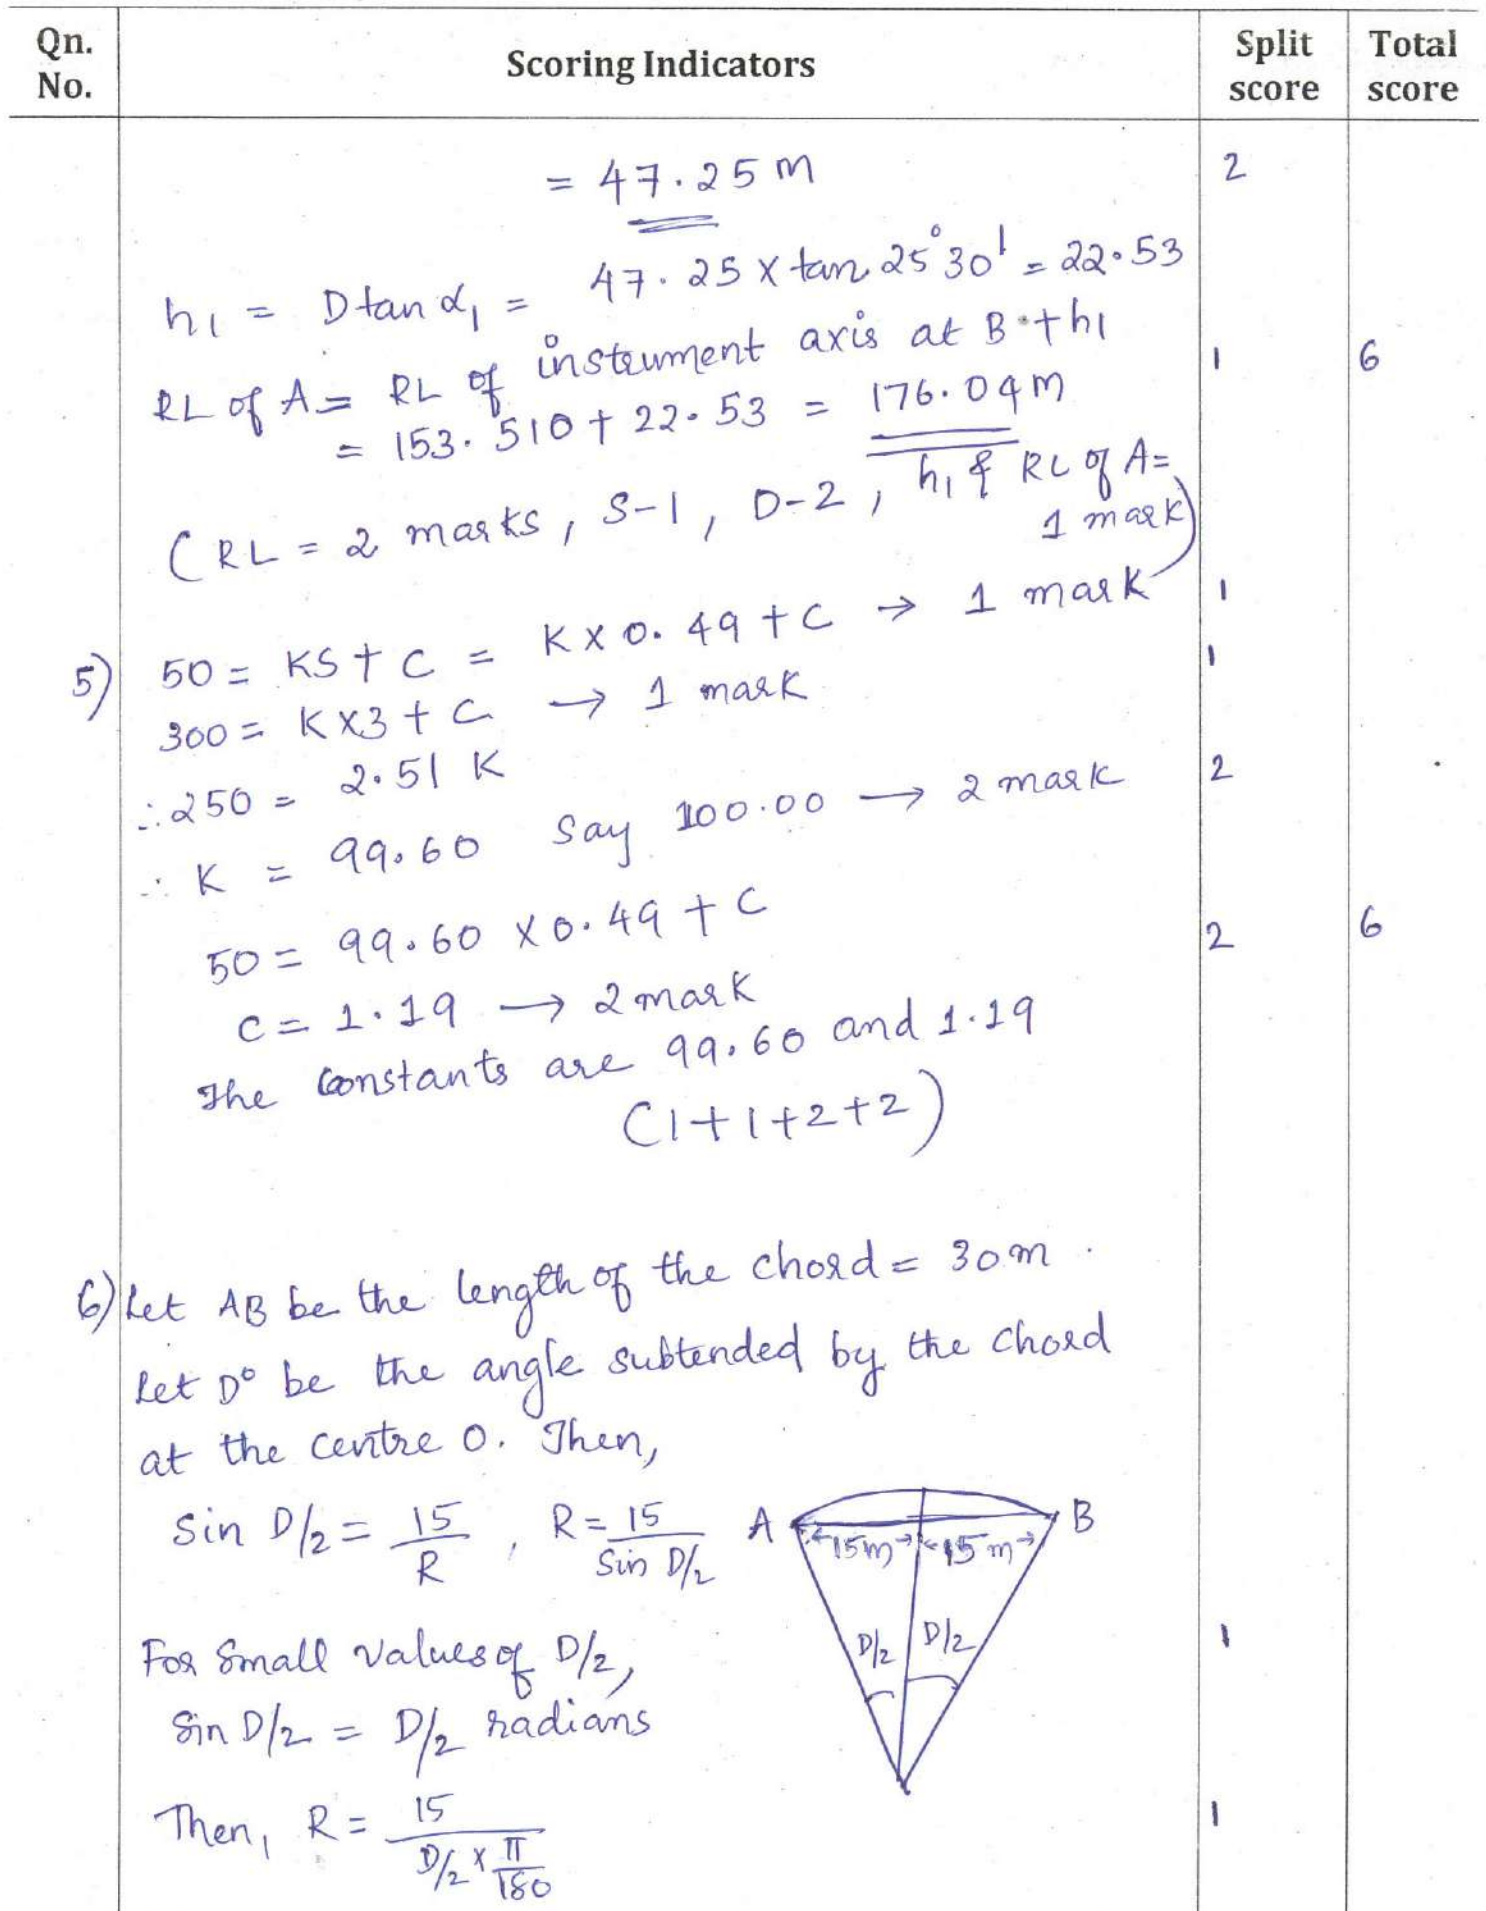 Qn. No. Scoring Indicators Split score Total score
= 47.25 m 2
h1 = D tan α1 = 47.25 x tan 25°30' = 22.53
RL of A = RL of instrument axis at B + h1 1 6
= 153.510 + 22.53 = 176.04 m
(RL = 2 marks, S-1, D-2, h1 & RL of A = 1 mark)
5) 50 = KS + C = K x 0.49 + C → 1 mark 1
300 = K x 3 + C → 1 mark 1
∴ 250 = 2.51 K
∴ K = 99.60 Say 100.00 → 2 mark 2
50 = 99.60 x 0.49 + C
C = 1.19 → 2 mark 2 6
The constants are 99.60 and 1.19
(1+1+2+2)
6) Let AB be the length of the chord = 30 m.
Let D° be the angle subtended by the chord
at the centre O. Then,
Sin D/2 = 15/R, R = 15/Sin D/2
A B
15m 15m
D/2 D/2
For Small values of D/2, 1
Sin D/2 = D/2 radians
Then, R = 15/(D/2 x π/180) 1